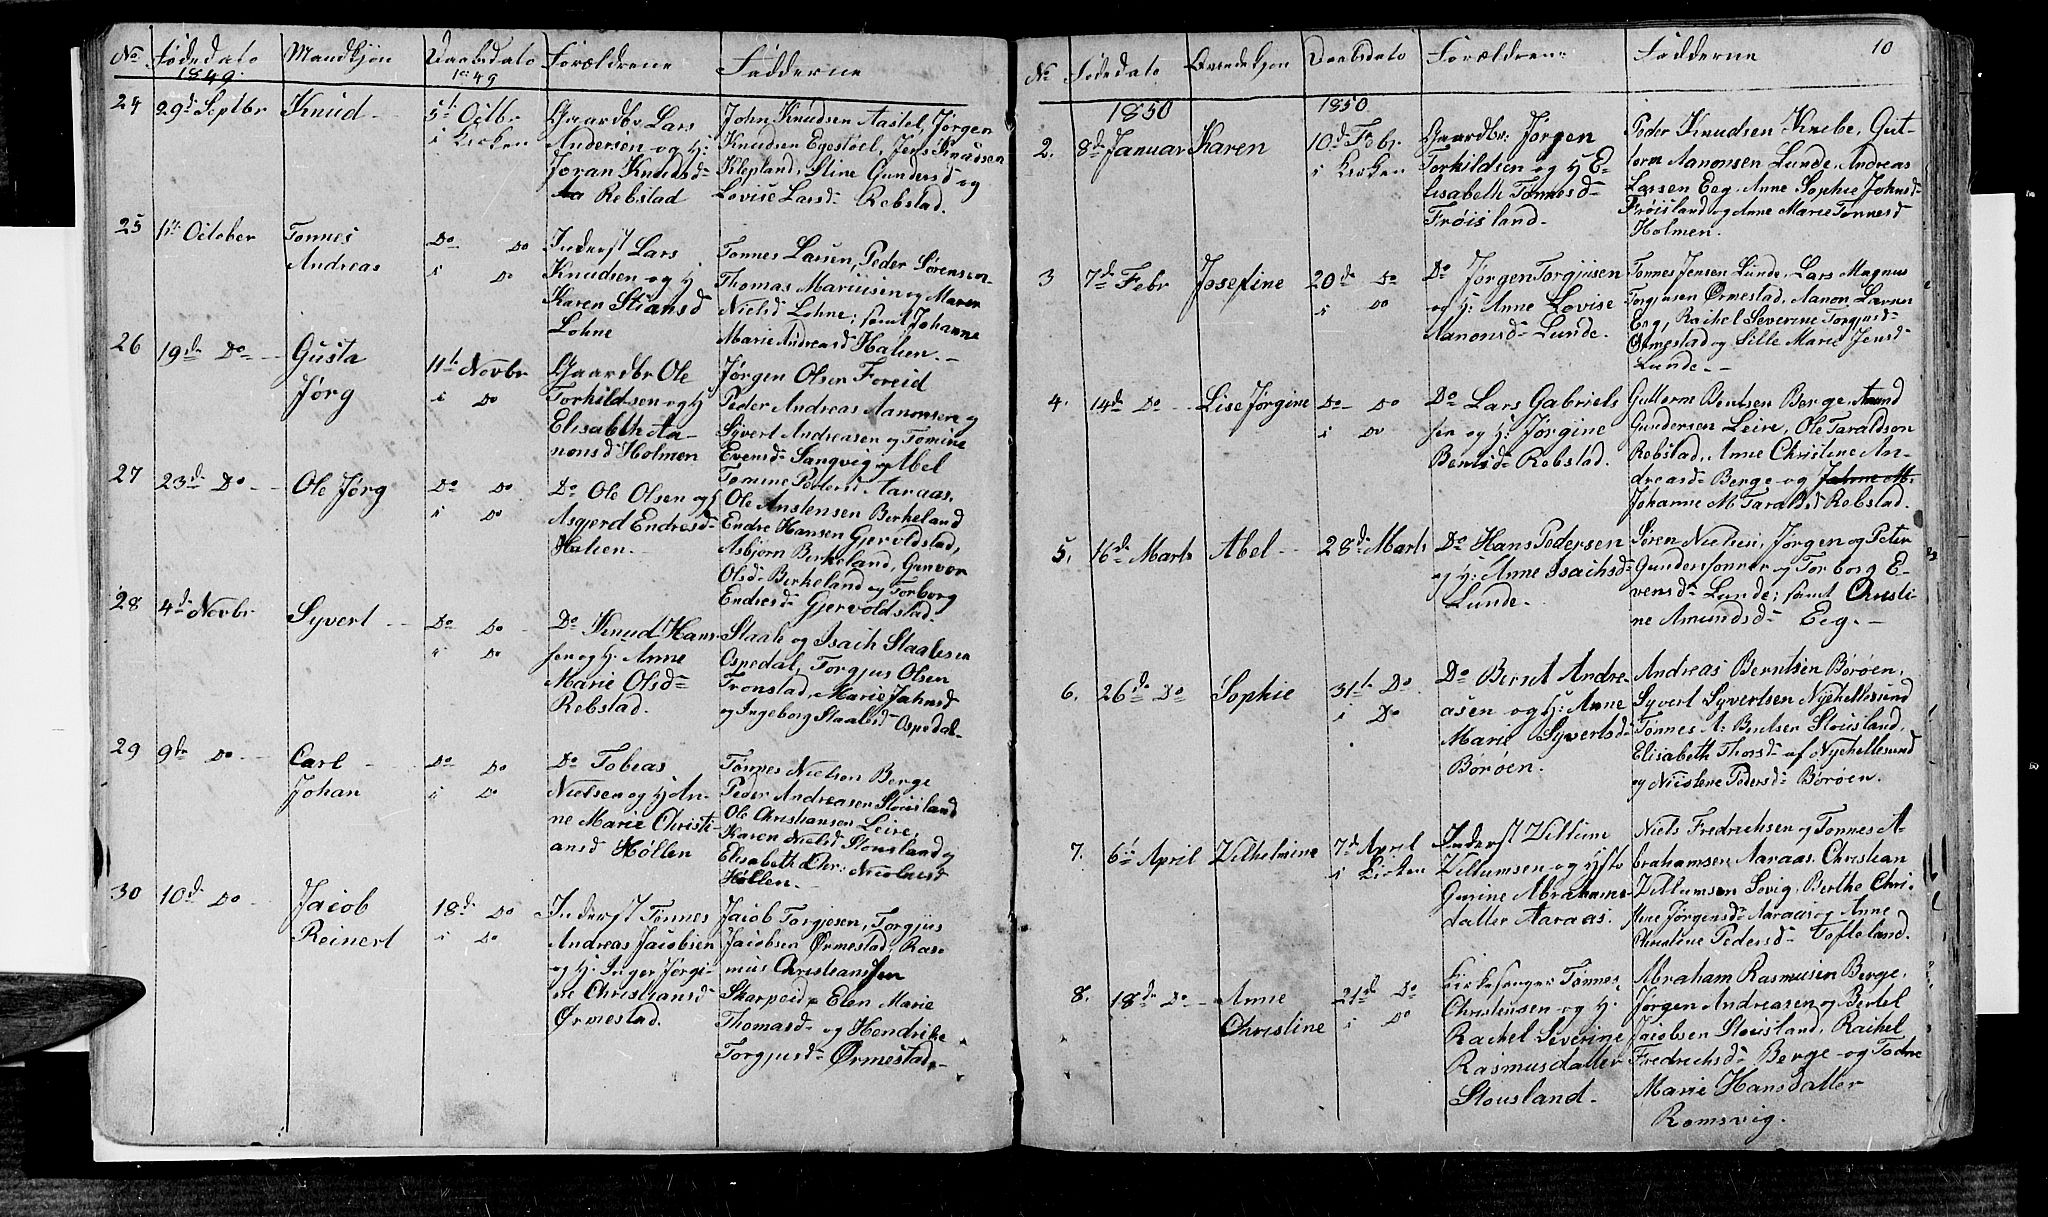 No Fødedato Mandkjøn Daabsdato Forældrene Fadderne
1849. 1849
24 29d Septbr Knud 5t Octbr i Kirken
Gaardbr Lars
Andersen og H:
Joran Knudsd
Aa Rebstad
John Knudsen Aastel, Jørgen
Knudsen Egestøel, Jens Knudsen
Klepland, Stine Gundersd og
Lovise Larsd Rebstad.
25 1ste October Tonnes Andreas Do Do i Do
Inderst Lars
Knudsen og H
Karen Stiansd
Lohne
Tonnes Larsen, Peder Sørensen
Thomas Mariusen og Maren
Nielsd Lohne; samt Johanne
Marie Andreasd Halsen.
26 19de Do Gusta Jørg 11te Novbr i Do
Gaardbr Ole
Torkildsen og H
Elisabeth Aa-
nonsd Holmen
Jørgen Olsen Foreid
Peder Andreas Aanonsen og
Syvert Andreasen og Tomine
Evensd Sangvig og Abel
Tomine Pedersd Aaraas.
27 23d Do Ole Jørg Do Do i Do
Do Ole Olsen og H
Asgjerd Endresd
Halsen.
Ole Anstensen Birkeland
Endre Hansen Gjervoldstad,
Asbjørn Berkeland, Gunvor
Olsd Berkeland og Torborg
Endresd Gjervoldstad.
28 4d Novbr Syvert Do Do i Do
Do Knud Hans-
sen og H: Anne
Marie Olsd
Rebstad.
Staale og Isach Staalesen
Ospedal, Torgjus Olsen
Tronstad, Marie Jahnsd
og Ingeborg Staalesd Ospedal
29 9de Do Carl Johan Do Do i Do
Do Tobias
Nielsen og H An-
ne Marie Christi-
ansd Høllen
Tønnes Nielsen Berge
Peder Andreasen Stousland
Ole Christiansen Leire,
Karen Nielsd Stousland og
Elisabeth Chr: Nicolaisd
Høllen.
30 10d Do Jacob Reinert 18d Do i Do
Inderst Tønnes
Andreas Jacobsen
og H. Inger Jørgi-
ne Christiansd
Ørmestad.
Jacob Torgjesen, Torgjus
Jacobsen Ørmestad, Ras-
mus Christianssen
Skarpeid, Elen Marie
Thomasd og Hendrikke
Torgjusd Ørmestad.
10
No Fødedato Qvindekjøn Daabsdato Forældrene Fadderne
1850 1850
2. 8d Januar Karen 10d Febr. i Kirken
Gaardbr: Jørgen
Torkildsen og H E-
lisabeth Tønnesd
Frøisland.
Peder Knudsen Knibe, Gut-
torm Aanonsen Lunde, Andreas
Larsen Eeg, Anne Sophie Johnsd
Frøisland og Anne Marie Tønnesd
Holmen.
3 7d Febr Josefine 20d Do i Do
Do Jørgen Torgjusen
og H: Anne Lovise
Aanonsd Lunde.
Tonnes Jensen Lunde, Lars Magnus
Torgjusen Ørmestad, Aanon Larsen
Eeg, Rachel Severine Torgjusd
Ormestad og Sille Marie Jensd
Lunde.
4. 14d Do Lise Jørgine Do Do i Do
Do Lars Gabriels
sen og H: Jørgine
Berntsd Rebstad.
Guttorm Bentsen Berge, Amund
Gundersen Leire, Ole Taraldson
Rebstad, Anne Christine An-
dreasd Berge og Jahne M.
Johanne M Taraldsd Rebstad.
5. 16de Marts Abel 28d Marts
Do Hans Pedersen
og H: Anne Isachsd
Lunde.
Søren Nielsen, Jørgen og Peter
Gunderssønner og Torborg E-
vensd Lunde; samt Christi-
ne Amundsd Eeg.
6. 26de Do Sophie 31te Do. i Do
Do Bernt Andre-
asen og H: Anne
Marie Syvertsd
Borøen.
Andreas Berntsen Børøen,
Syvert Syvertsen Nyehellesund
Tonnes A: Bentsen Stousland,
Elisabeth Thorsd af Nyehellesund
og Nicoline Pedersd Børøen.
7. 6te April Vilhelmine 7d April i Kirken
Inderst Villum
Villumsen og Hust
Gurine Abrahams
datter Aaraas.
Niels Fredrichsen og Tonnes A-
brahamsen Aaraas, Christian
Villumsen Søvig, Berthe Chri-
stine Jørgensd Aaraas og Anne
Christine Pedersd Tofteland.
8. 18d Do Anne Christine 21d Do i Do
Kirkesanger Tønnes
Christensen og H.
Rachel Severine
Rasmusdatter
Stousland.
Abraham Rasmusen Berge,
Jørgen Andreasen og Bertel
Jacobsen Stousland, Rachel
Fredrichsd Berge og Todne
Marie Hansdatter
Romsvig.